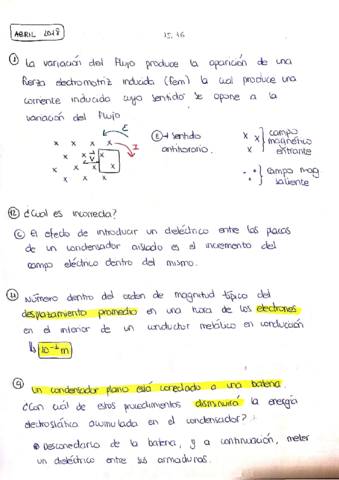 ABRIL 2018
15, 16
① La variación del Flujo produce la aparición de una
fuerza electromotriz inducida (fem) la cual produce una
corriente inducida cuyo sentido se opone a la
variación del Flujo
x x x x
x x x
x x x
x x x x
E
I
V
Ⓔ → sentido
antihorario.
x x
x
campo
magnético
entrante
campo mag
saliente
⑫ ¿Cual es incorrecta?
Ⓒ El efecto de introducir un dieléctrico entre las placas
de un condensador aislado es el incremento del
campo eléctrico dentro del mismo.
⑪ Número dentro del orden de magnitud típico del
desplazamiento promedio en una hora de los electrones
en el interior de un conductor metálico en conducción
m
Un condensador plano está conectado a una batería.
¿Con cuál de estos procedimientos disminuirá la energía
electrostática acumulada en el condensador?
Desconectarlo de la batería, y a continuación, meter
un dieléctrico entre sus armaduras.